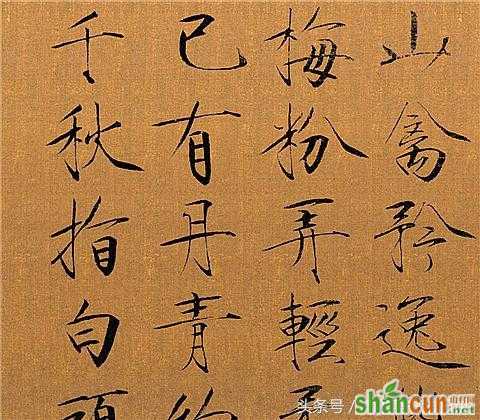 山禽矜逸
梅粉弄輕
已有丹青約
千秋指白頭
头条号 /
shancun
山村网
.net